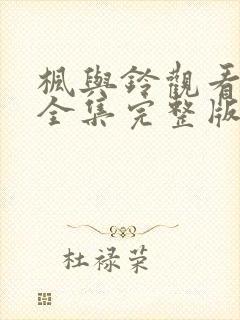 楓與鈴觀看
全集完整版
杜禄荣